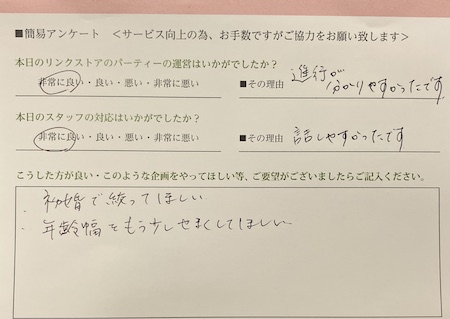 ■簡易アンケート ＜サービス向上の為、お手数ですがご協力をお願い致します＞
本日のリンクストアのパーティーの運営はいかがでしたか？
非常に良い・良い・悪い・非常に悪い
■その理由 進行が分かりやすかったです
本日のスタッフの対応はいかがでしたか？
非常に良い・良い・悪い・非常に悪い
■その理由 話しやすかったです
こうした方が良い・このような企画をやってほしい等、ご要望がございましたらご記入ください。
・初婚で絞ってほしい
・年齢幅をもう少しせまくしてほしい